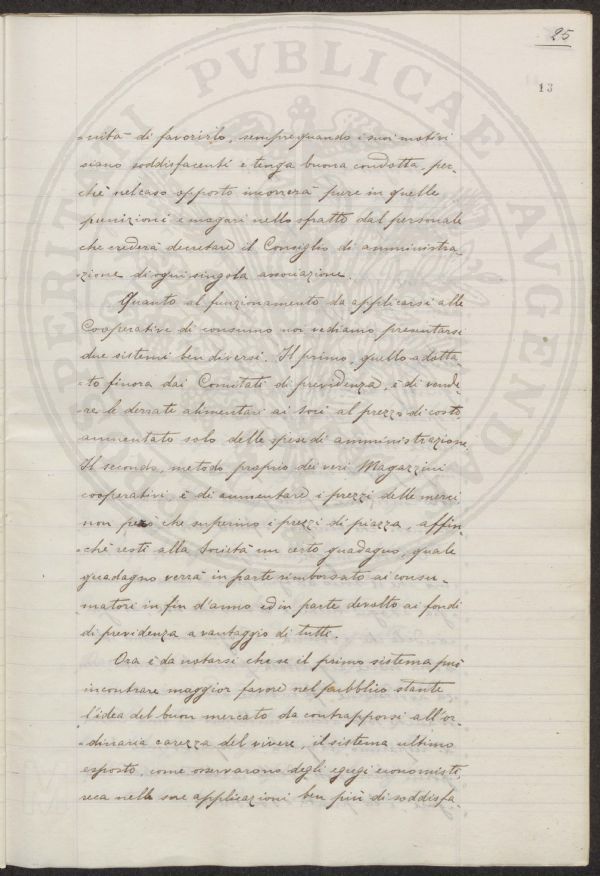 25
13
PROSPERITATI PVBLICAE AVGENDAE
-nità di favorirlo, sempre quando i suoi motivi
siano soddisfacenti e tenga buona condotta, per-
chè nel caso opposto incorrerà pure in quelle
punizioni e magari nello sfratto dal personale
che crederà decretare il Consiglio di amministra-
-zione di ogni singola associazione.
Quanto al funzionamento da applicarsi alle
Cooperative di consumo noi vediamo presentarsi
due sistemi ben diversi. Il primo, quello adotta-
-to finora dai Comitati di previdenza, è di vende-
-re le derrate alimentari ai soci al prezzo di costo,
aumentato solo delle spese di amministrazione.
Il secondo, metodo proprio dei veri Magazzini
cooperativi, è di aumentare i prezzi delle merci
non però che superino i prezzi di piazza, affin-
-chè resti alla Società un certo guadagno, quale
guadagno verrà in parte rimborsato ai consu-
matori in fin d'anno ed in parte devolto ai fondi
di previdenza a vantaggio di tutti.
Ora è da notarsi che se il primo sistema può
incontrare maggior favore nel pubblico stante
l'idea del buon mercato da contrapporsi all'or-
-dinaria carezza del vivere, il sistema ultimo
esposto, come osservarono degli egregi economisti,
reca nelle sue applicazioni ben più di soddisfa-